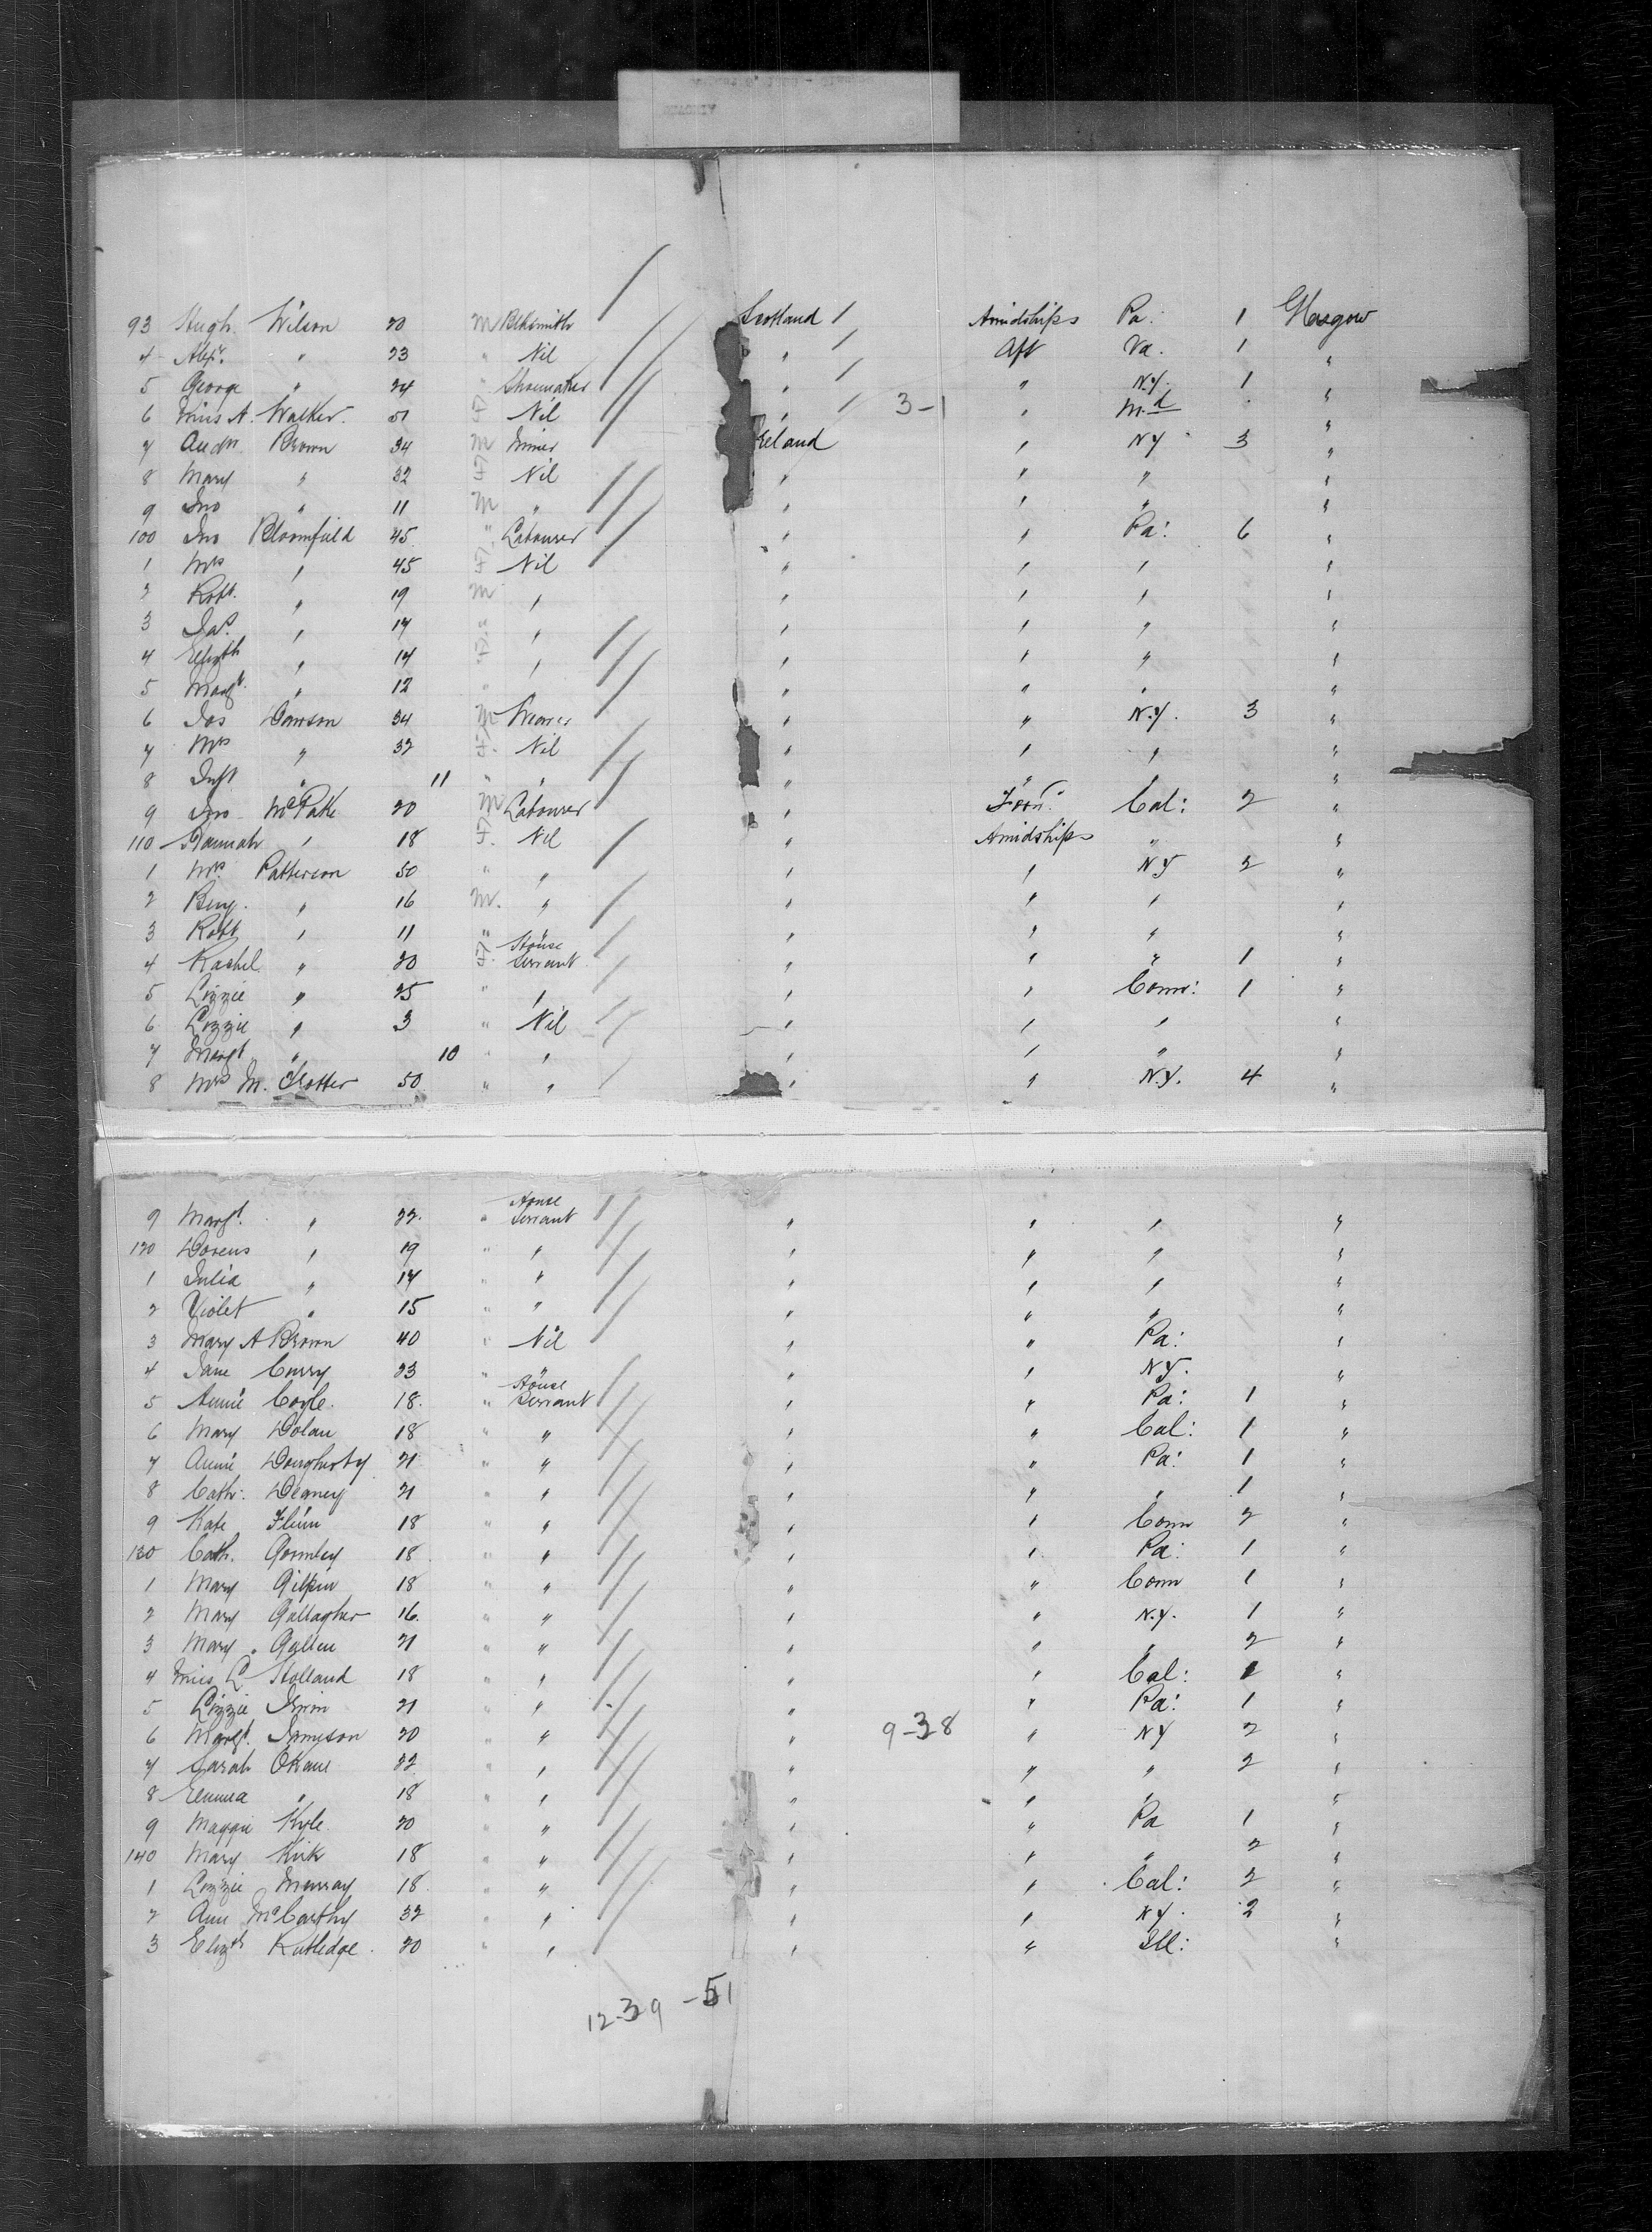 93 Hugh Wilson 20 M Blksmith Scotland 1 Amidships Pa: 1 Glasgow
4 Alexr. " 23 " Nil " 1 Aft Va. 1 "
5 George " 24 " Shoemaker " 1 " N.Y. 1 "
6 Miss A. Walker. 51 F Nil " 1 3-1 " M.d "
7 Andw Brown 34 M Miner Ireland " NY 3 "
8 Mary " 32 F Nil " " " "
9 Jno " 11 M " " " " "
100 Jno Bloomfield 45 " Labourer " " Pa: 6 "
1 Mrs " 45 F Nil " " " "
2 Robt. " 19 M " " " " "
3 Jas. " 17 " " " " " "
4 Elizth " 14 F " " " " "
5 Margt. " 12 " " " " "
6 Jas Dawson 34 M " " N.Y. 3 "
7 Mrs " 32 F. Nil " " " "
8 Inft " 11 " " " " " "
9 Jno McPake 20 M Labourer " Forw. Cal: 2 "
110 Hannah " 18 F. Nil " Amidships " "
1 Mrs. Patterson 50 " " " " NY 2 "
2 Benj. " 16 M. " " " " "
3 Robt " 11 " " " " " "
4 Rachel " 20 F. House Servant " " " 1 "
5 Lizzie " 25 " " " " Conn: 1 "
6 Lizzie " 3 " Nil " " " "
7 Margt " 10 " " " " " "
8 Mrs M. Trotter 50 " " " " N.Y. 4 "
9 Margt. " 22. " House Servant " " " "
120 Dorcus " 19 " " " " " "
1 Julia " 17 " " " " " "
2 Violet " 15 " " " " " "
3 Mary A Brown 40 " Nil " " Pa: "
4 Jane Curry 23 " " " " NY. "
5 Annie Coyle. 18. " House Servant " " Pa: 1 "
6 Mary Dolan 18 " " " " Cal: 1 "
7 Annie Dougherty 21 " " " " Pa: 1 "
8 Cath: Deaney 21 " " " " " 1 "
9 Kate Flinn 18 " " " " Conn 2 "
130 Cath. Gormley 18 " " " " Pa: 1 "
1 Mary Gilpin 18 " " " " Conn 1 "
2 Mary Gallagher 16. " " " " N.Y. 1 "
3 Mary Gallen 21 " " " " " 2 "
4 Miss L Holland 18 " " " " Cal: "
5 Lizzie Irwin 21 " " " " Pa: 1 "
6 Margt. Jameson 20 " " " 9-38 " NY 2 "
7 Sarah OKane 22 " " " " " 2 "
8 Emma " 18 " " " " " "
9 Maggie Kyle. 20 " " " " Pa 1 "
140 Mary Kirk 18 " " " " " 2 "
1 Lizzie Murray 18 " " " " Cal: 2 "
2 Ann McCarthy 32 " " " " NY. 2 "
3 Elizth Rutledge. 20 " " " " Ill: "
12-39-51